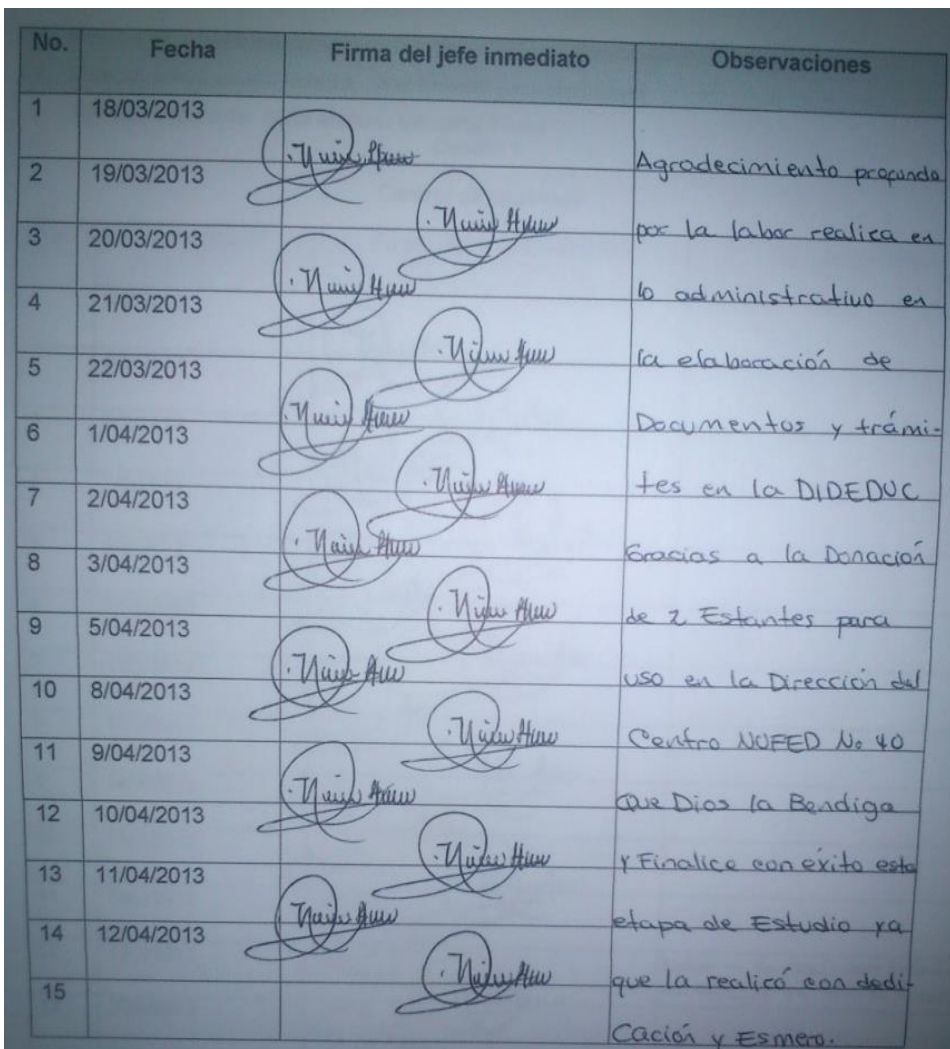 No. Fecha Firma del jefe inmediato Observaciones
1 18/03/2013
Agradecimiento profundo
2 19/03/2013
por la labor realica en
3 20/03/2013
lo administrativo en
4 21/03/2013
la elaboración de
5 22/03/2013
Documentos y trámi-
6 1/04/2013
tes en la DIDEDUC
7 2/04/2013
Gracias a la Donación
8 3/04/2013
de 2 Estantes para
9 5/04/2013
uso en la Dirección del
10 8/04/2013
Centro NUFED No 40
11 9/04/2013
Que Dios la Bendiga
12 10/04/2013
y Finalice con éxito esta
13 11/04/2013
etapa de Estudio ya
14 12/04/2013
que la realicó con dedi-
15
cación y Esmero.